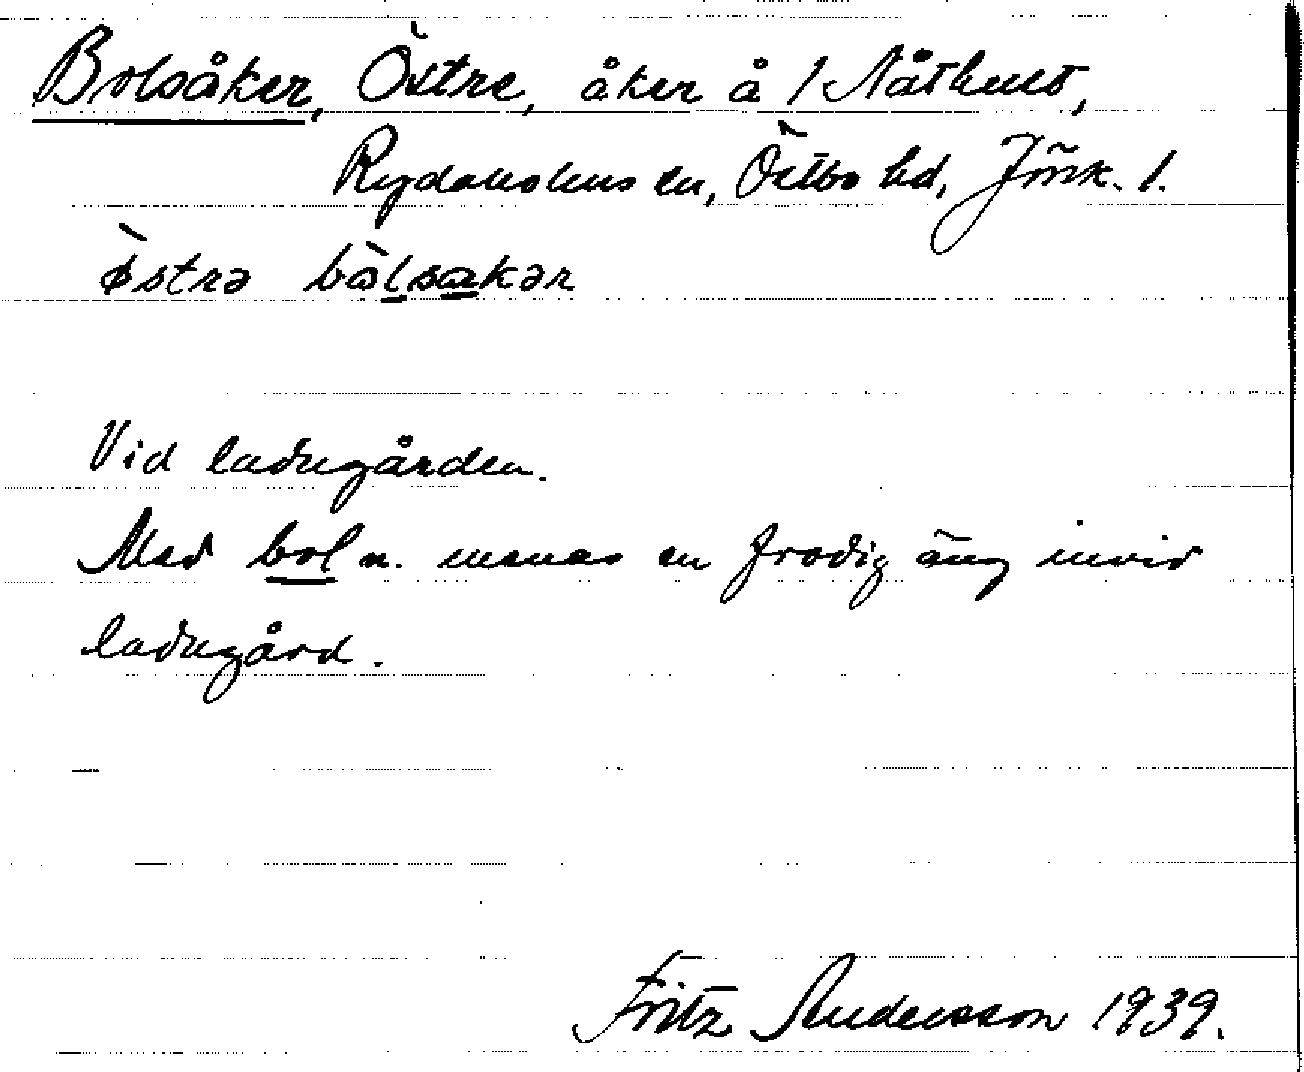 Bolsåker, Östre, åker å 1 Nåthult,
Rydaholms sn, Östbo hd, Jönk. l.
östrə bolsakər
Vid ladugården.
Med bol n. menas en frodig äng invid
ladugård.
Fritz Andersson 1939.